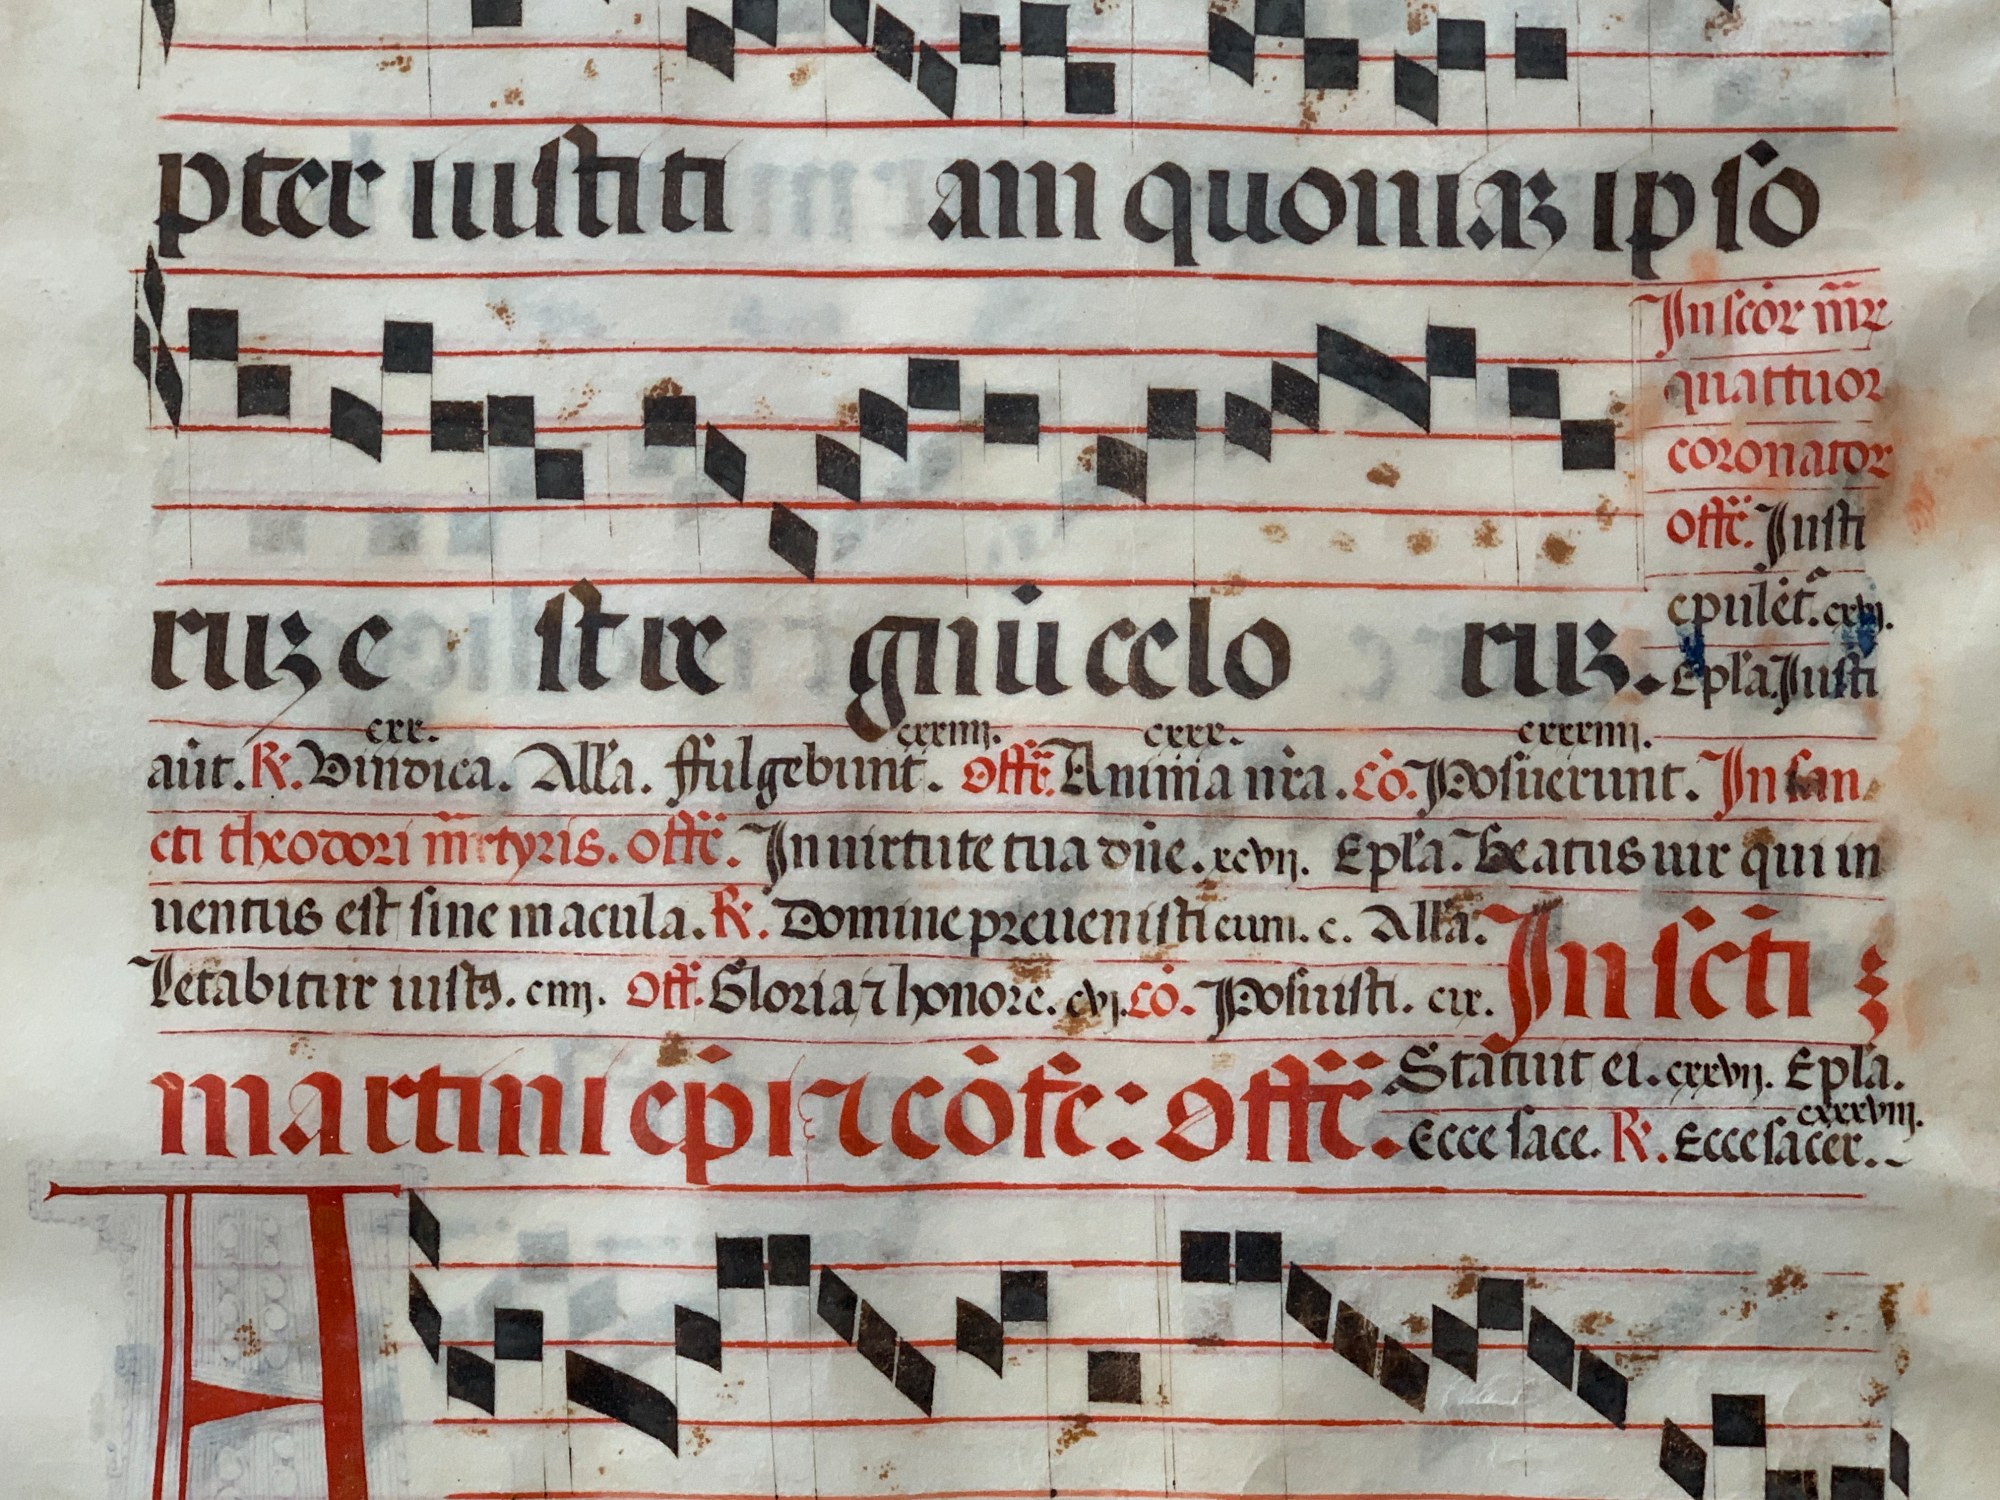 pter iustiti am quoniaʒ ipso
In scōr m̄r
quattuor
coronator
offc̄. Justi
epulēt. cxvi.
ruʒ e st re gnū celo ruʒ.
Epl'a. Justi
cxx. cxxiiij. cxxx. cxxxxiiij.
aūt. R. Vindica. All'a. ffulgebunt. Offr̄. Anima nr̄a. Cō. Posuerunt. In san
cti theodori m̄rtyris. offc̄. In uirtute tua dn̄e. xcvij. Epl'a. Beatus uir qui in
uentus est sine macula. R. Domine preuenisti eum. c. All'a.
Letabitur iustꝯ. ciiij. Off. Gloria ⁊ honore. cvj. Cō. Posuisti. cix. In scti ʒ
martini ep̄i ⁊ cōfe: offc̄. Statuit ei. cxxvij. Epl'a.
cxxxviij.
Ecce sace. R. Ecce sacer.
A